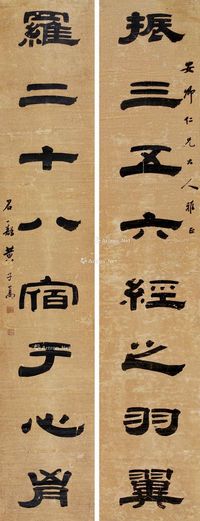 振三五六經之羽翼
安卿仁兄大人雅正
羅二十八宿于心胷
石谿黃子